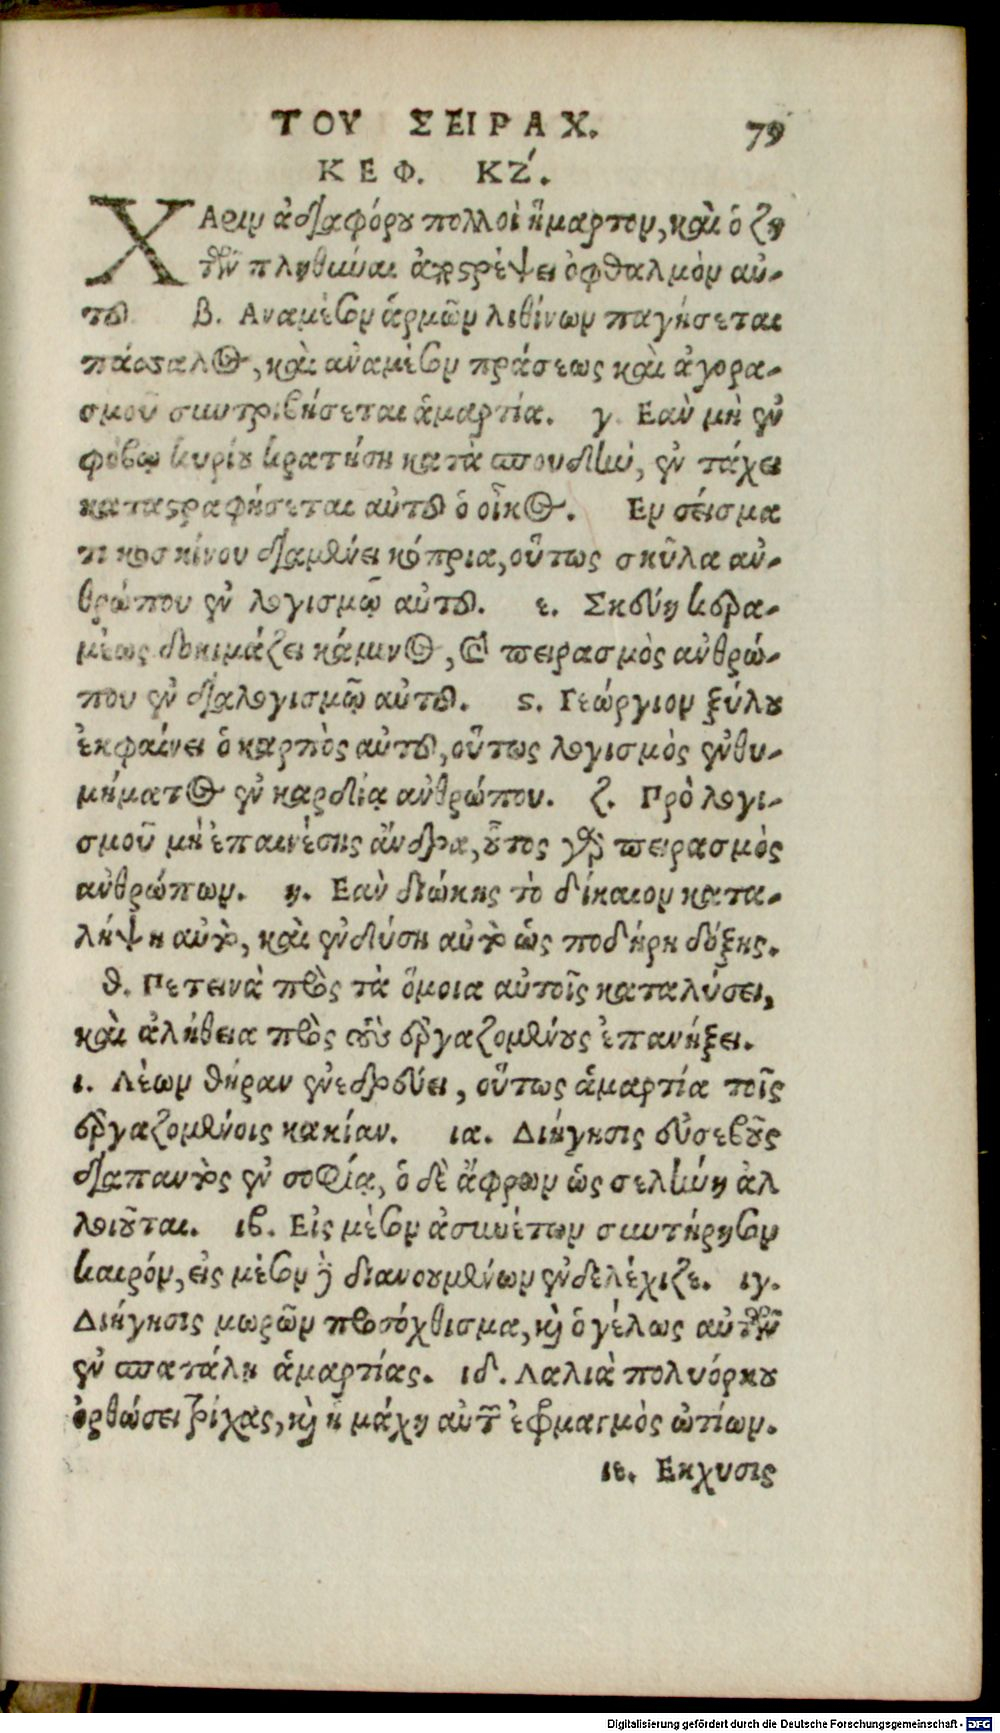 ΤΟΥ ΣΕΙΡΑΧ. 79
ΚΕΦ. ΚΖ΄.
ΧΑριν ἀδιαφόρου πολλοὶ ἥμαρτον, καὶ ὁ ζη
τῶν πληθῦναι ἀποστρέψει ὀφθαλμὸν αὐ-
τοῦ β. Αναμέσον ἁρμῶν λιθίνων παγήσεται
πάσσαλος, καὶ ἀναμέσον πράσεως καὶ ἀγορα-
σμοῦ συντριβήσεται ἁμαρτία. γ. Εαὺ μὴ ἐν
φόβῳ κυρίου κρατήσῃ κατὰ σπουδὴν, ἐν τάχει
καταστραφήσεται αὐτοῦ ὁ οἶκος. Εν σείσμα
τι κοσκίνου διαμένει κόπρια, οὕτως σκῦλα ἀν-
θρώπου ἐν λογισμῷ αὐτοῦ. ε. Σκεύη κερα-
μέως δοκιμάζει κάμινος, καὶ πειρασμὸς ἀνθρώ-
που ἐν διαλογισμῷ αὐτοῦ. ϛ. Γεώργιον ξύλου
ἐκφαίνει ὁ καρπὸς αὐτοῦ, οὕτως λογισμὸς ἐνθυ-
μήματος ἐν καρδίᾳ ἀνθρώπου. ζ. Πρὸ λογι-
σμοῦ μὴ ἐπαινέσῃς ἄνδρα, οὗτος γὰρ πειρασμὸς
ἀνθρώπων. η. Εαν διώκῃς τὸ δίκαιον κατα-
λήψῃ αὐτὸ, καὶ ἐνδύσῃ αὐτὸ ὡς ποδήρη δόξης.
θ. Πετεινὰ πρὸς τὰ ὅμοια αὐτοῖς καταλύσει,
καὶ ἀλήθεια πρὸς τοὺς ἐργαζομένους ἐπανήξει.
ι. Λέων θήραν ἐνεδρεύει, οὕτως ἁμαρτία τοῖς
ἐργαζομένοις κακίαν. ια. Διήγησις εὐσεβοῦς
διαπαντὸς ἐν σοφίᾳ, ὁ δὲ ἄφρων ὡς σελήνη ἀλ
λοιοῦται. ιβ. Εἰς μέσον ἀσυνέτων συντήρησον
καιρόν, εἰς μέσον δὲ διανοουμένων ἐνδελέχιζε. ιγ.
Διήγησις μωρῶν προσόχθισμα, καὶ ὁ γέλως αὐτῶν
ἐν σπατάλῃ ἁμαρτίας. ιδ. Λαλιὰ πολυόρκου
ὀρθώσει τρίχας, καὶ ἡ μάχη αὐτῶν ἐμφραγμὸς ὠτίων.
ιε. Εκχυσις
Digitalisierung gefördert durch die Deutsche Forschungsgemeinschaft - DFG